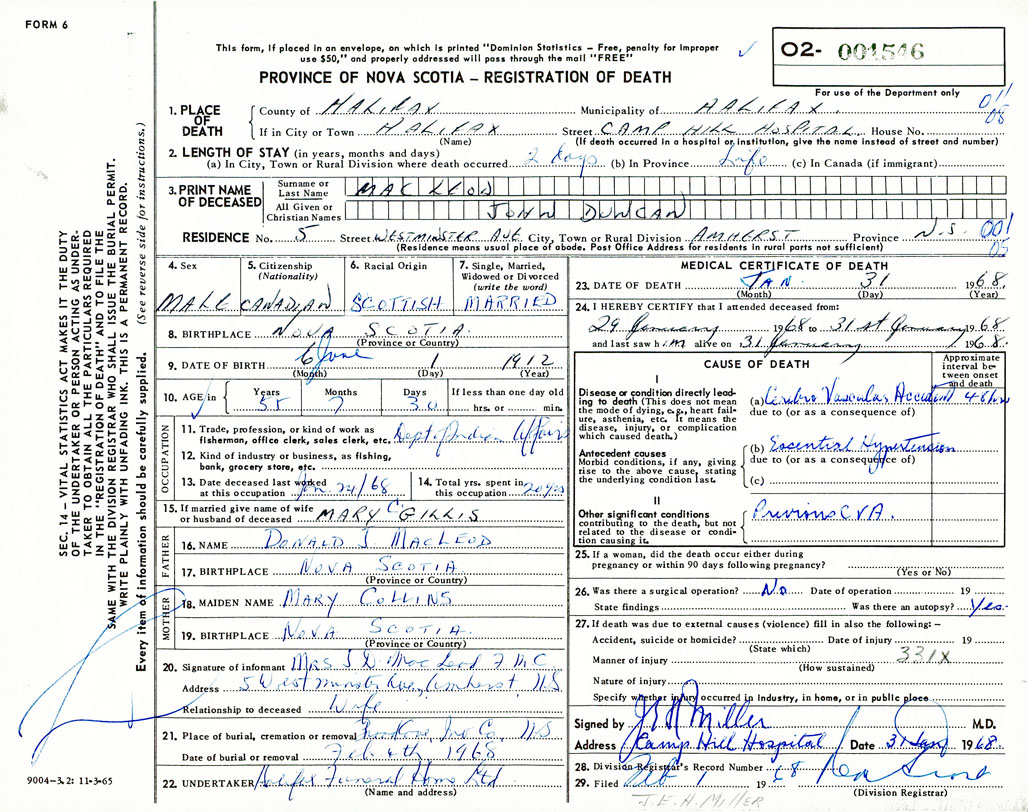 FORM 6
This form, if placed in an envelope, on which is printed "Dominion Statistics – Free, penalty for improper
use $50," and properly addressed will pass through the mail "FREE"
O2- 001546
PROVINCE OF NOVA SCOTIA – REGISTRATION OF DEATH
For use of the Department only
011
08
1. PLACE OF DEATH
County of HALIFAX Municipality of HALIFAX.
If in City or Town HALIFAX Street CAMP HILL HOSPITAL House No.
(Name) (If death occurred in a hospital or institution, give the name instead of street and number)
2. LENGTH OF STAY (in years, months and days)
(a) In City, Town or Rural Division where death occurred 2 days (b) In Province Life (c) In Canada (if immigrant)
3. PRINT NAME OF DECEASED
Surname or Last Name MAC LEOD
All Given or Christian Names JOHN DUNCAN
RESIDENCE No. 5 Street WESTMINSTER AVE City, Town or Rural Division AMHERST Province N.S. 001
05
(Residence means usual place of abode. Post Office Address for residents in rural parts not sufficient)
4. Sex MALE
5. Citizenship (Nationality) CANADIAN
6. Racial Origin SCOTTISH
7. Single, Married, Widowed or Divorced (write the word) MARRIED
8. BIRTHPLACE NOVA SCOTIA.
(Province or Country)
9. DATE OF BIRTH 6 June 1 1912
(Month) (Day) (Year)
10. AGE in Years 55 Months 7 Days 30 If less than one day old hrs. or min.
OCCUPATION
11. Trade, profession, or kind of work as
fisherman, office clerk, sales clerk, etc. Dept. Indian Affairs
12. Kind of industry or business, as fishing,
bank, grocery store, etc.
13. Date deceased last worked
at this occupation Jan. 24/68
14. Total yrs. spent in
this occupation 20 yrs
15. If married give name of wife
or husband of deceased MARY C GILLIS
FATHER
16. NAME DONALD J. MACLEOD
17. BIRTHPLACE NOVA SCOTIA
(Province or Country)
MOTHER
18. MAIDEN NAME MARY COLLINS
19. BIRTHPLACE NOVA SCOTIA.
(Province or Country)
20. Signature of informant Mrs J D MacLeod
Address 5 Westminster Ave, Amherst, N.S
Relationship to deceased Wife
21. Place of burial, cremation or removal Inv Co. N.S
Date of burial or removal Feb 4th 1968
22. UNDERTAKER Halifax Funeral Home Ltd
(Name and address)
MEDICAL CERTIFICATE OF DEATH
23. DATE OF DEATH JAN. 31 1968.
(Month) (Day) (Year)
24. I HEREBY CERTIFY that I attended deceased from:
29 January 1968 to 31st January 1968
and last saw him alive on 31 January 1968.
CAUSE OF DEATH
Approximate interval between onset and death
I
Disease or condition directly leading to death (This does not mean the mode of dying, e.g., heart failure, asthenia, etc. It means the disease, injury, or complication which caused death.)
(a) Cerebro Vascular Accident 48 hrs
due to (or as a consequence of)
Antecedent causes
Morbid conditions, if any, giving rise to the above cause, stating the underlying condition last.
(b) Essential Hypertension
due to (or as a consequence of)
(c)
II
Other significant conditions
contributing to the death, but not related to the disease or condition causing it.
Previous CVA.
25. If a woman, did the death occur either during
pregnancy or within 90 days following pregnancy?
(Yes or No)
26. Was there a surgical operation? No Date of operation 19
State findings Was there an autopsy? Yes.
27. If death was due to external causes (violence) fill in also the following: –
Accident, suicide or homicide? Date of injury 19
(State which)
Manner of injury 331X
(How sustained)
Nature of injury
Specify whether injury occurred in Industry, in home, or in public place
Signed by Miller M.D.
Address Camp Hill Hospital Date 31 Jan 1968.
28. Division Registrar's Record Number
29. Filed Feb 1 1968
(Division Registrar)
J.E.H. MILLER
9004-3.2: 11-3-65
SEC. 14 – VITAL STATISTICS ACT MAKES IT THE DUTY
OF THE UNDERTAKER OR PERSON ACTING AS UNDER-
TAKER TO OBTAIN ALL THE PARTICULARS REQUIRED
IN THE "REGISTRATION OF DEATH" AND TO FILE THE
SAME WITH THE DIVISION REGISTRAR WHO SHALL ISSUE THE BURIAL PERMIT.
WRITE PLAINLY WITH UNFADING INK. THIS IS A PERMANENT RECORD.
Every item of information should be carefully supplied. (See reverse side for instructions.)